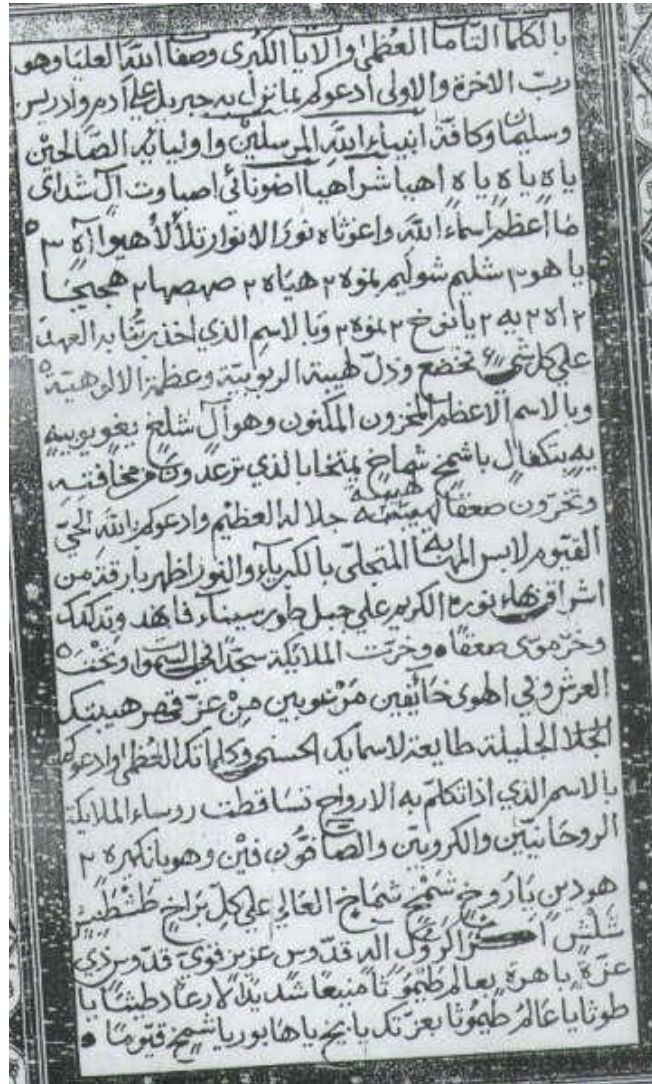 بالكلمات التامات العظمى والايات الكبرى وصفات الله العليا وهو
رب الاخرة والاولى ادعوكم بما نزل به جبريل علي ادم وادريس
وسليمان وكافة انبياء الله المرسلين واوليائه الصالحين
ياه ياه ياه اهيا شراهيا اضونائي اصباوت آل شداى
ما اعظم اسماء الله واغوثاه نور الانوار تلألأ لاهيوا آه ٣
يا هو ٣ شليم شوليم بموه ٢ هياه ٢ صهصها ٢ هجيجا
٢ اه ٢ يه ٢ يا نوخ ٢ بموه ٢ وبالاسم الذي اخذ ربنا به العهد
علي كل شيء تخضع وذل لهيبة الربوبية وعظمة الالوهية
وبالاسم الاعظم المخزون المكنون وهو آل شلخ يغو يوبيه
يه بتكفال باشمخ شماخ بمتخا بالذي ترعدون من مخافته
وتخرون صعقا لهيبة جلاله العظيم وادعوكم بالله الحي
القيوم لابس المهابه المتجلى بالكبرياء والنور اظهر بارقة من
اشراق بهاء نوره الكريم علي جبل طور سيناء فانهد وتدكدك
وخر موسى صعقا وخرت الملائكة سجدا في السموات وتحت
العرش وفي الهوى خائفين مرعوبين من عز قهر هيبتك
الجلا الجليلة طايعة لاسمايك الحسنى وكلماتك العظمى وادعوكم
بالاسم الذي اذا تكلم به الارواح تساقطت روساء الملايكة
الروحانيين والكروبيين والصافون فين وهو يانكيره ٢
هودين ياروخ شمخ شماخ العالي علي كل براخ طشطيش
شلش الركزكل اله قدوس عزيز قوي قدوس ذي
عزة باهرة بعالم طيموثا منيعا شديدا لارعاد طشايا
طوثايا عالم طيموثا بعزتك يا يخ ياهابور يا شمخ قيوما